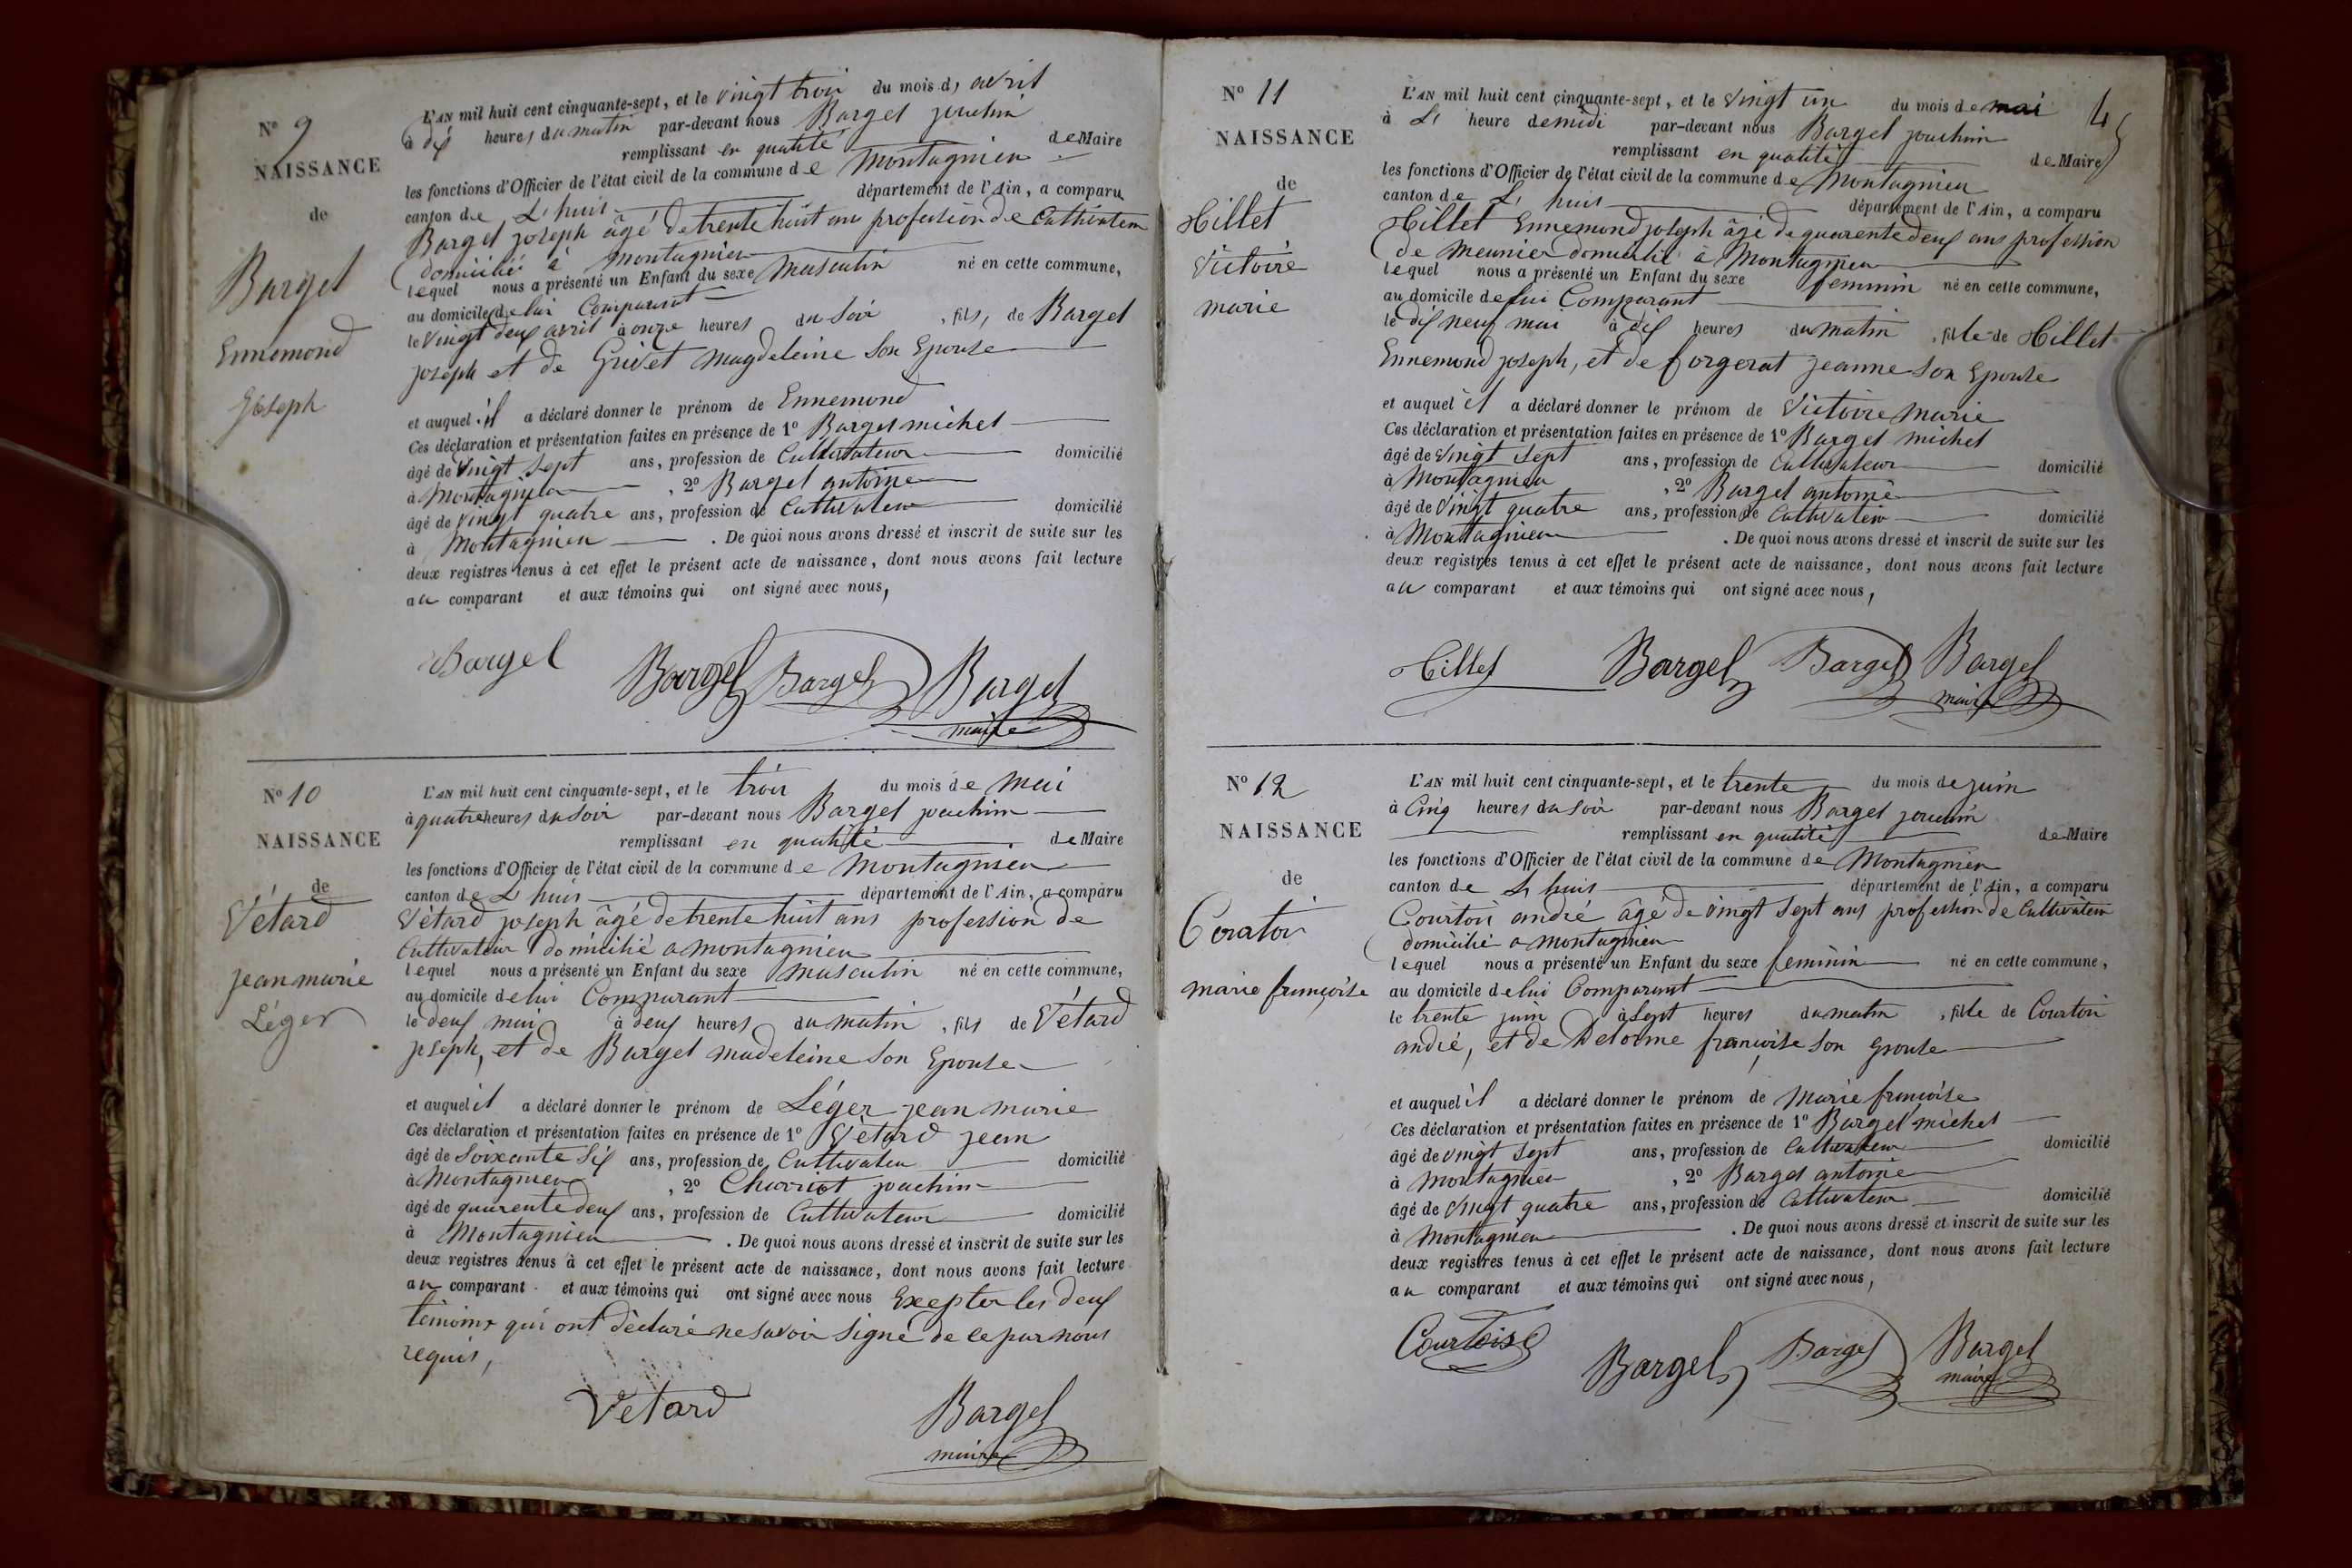 N° 9
NAISSANCE
de
Bargel
Ennemond
Joseph
L'AN mil huit cent cinquante-sept, et le vingt trois du mois d, avril
à dix heures du matin par-devant nous Bargel joachim
remplissant en qualité de Maire
les fonctions d'Officier de l'état civil de la commune de Montagnieu
canton de L'huis département de l'Ain, a comparu
Bargel joseph âgé de trente huit ans profession de Cultivateur
domicilié à montagnieu
lequel nous a présenté un Enfant du sexe masculin né en cette commune,
au domicile de lui Comparant
le vingt deux avril à onze heures du soir, fils, de Bargel
joseph et de Grivet magdeleine son Epouse
et auquel il a déclaré donner le prénom de Ennemond
Ces déclaration et présentation faites en présence de 1° Bargel michel
âgé de vingt sept ans, profession de Cultivateur domicilié
à Montagnieu, 2° Bargel antoine
âgé de vingt quatre ans, profession de Cultivateur domicilié
à Montagnieu. De quoi nous avons dressé et inscrit de suite sur les
deux registres tenus à cet effet le présent acte de naissance, dont nous avons fait lecture
au comparant et aux témoins qui ont signé avec nous,
Bargel Bargel Bargel Bargel
maire
N° 10
NAISSANCE
de
Vétard
jean marie
Léger
L'AN mil huit cent cinquante-sept, et le trois du mois de mai
à quatre heures du soir par-devant nous Bargel joachim
remplissant en qualité de Maire
les fonctions d'Officier de l'état civil de la commune de Montagnieu
canton de L'huis département de l'Ain, a comparu
Vétard joseph âgé de trente huit ans profession de
Cultivateur domicilié a montagnieu
lequel nous a présenté un Enfant du sexe masculin né en cette commune,
au domicile de lui Comparant
le deux mai à deux heures du matin, fils de Vétard
joseph, et de Bargel madeleine son Epouse
et auquel il a déclaré donner le prénom de Léger jean marie
Ces déclaration et présentation faites en présence de 1° Vétard jean
âgé de soixante six ans, profession de Cultivateur domicilié
à Montagnieu, 2° Charriot joachim
âgé de quarente deux ans, profession de Cultivateur domicilié
à Montagnieu. De quoi nous avons dressé et inscrit de suite sur les
deux registres tenus à cet effet le présent acte de naissance, dont nous avons fait lecture
au comparant et aux témoins qui ont signé avec nous Excepter les deux
témoins qui ont déclaré ne savoir signé de ce par nous
requis,
Vetard Bargel
maire
N° 11
NAISSANCE
de
Hillet
Victoire
marie
45
L'AN mil huit cent cinquante-sept, et le vingt un du mois de mai
à L' heure de midi par-devant nous Bargel joachim
remplissant en qualité de Maire
les fonctions d'Officier de l'état civil de la commune de Montagnieu
canton de L'huis département de l'Ain, a comparu
Hillet Ennemond joseph âgé de quarente deux ans profession
de meunier domicilié à Montagnieu
lequel nous a présenté un Enfant du sexe feminin né en cette commune,
au domicile de lui Comparant
le dix neuf mai à dix heures du matin, fille de Hillet
Ennemond joseph, et de forgerat jeanne son Epouse
et auquel il a déclaré donner le prénom de Victoire marie
Ces déclaration et présentation faites en présence de 1° Bargel michel
âgé de vingt sept ans, profession de Cultivateur domicilié
à Montagnieu, 2° Bargel antoine
âgé de vingt quatre ans, profession de Cultivateur domicilié
à Montagnieu. De quoi nous avons dressé et inscrit de suite sur les
deux registres tenus à cet effet le présent acte de naissance, dont nous avons fait lecture
au comparant et aux témoins qui ont signé avec nous,
Hillet Bargel Bargel Bargel
maire
N° 12
NAISSANCE
de
marie françoise
L'AN mil huit cent cinquante-sept, et le trente du mois de juin
à Cinq heures du soir par-devant nous Bargel joachim
remplissant en qualité de Maire
les fonctions d'Officier de l'état civil de la commune de Montagnieu
canton de L'huis département de l'Ain, a comparu
Courtois andré âgé de vingt sept ans profession de Cultivateur
domicilié a montagnieu
lequel nous a présenté un Enfant du sexe feminin né en cette commune,
au domicile de lui Comparant
le trente juin à sept heures du matin, fille de Courtois
andré, et de Delorme françoise son Epouse
et auquel il a déclaré donner le prénom de Marie françoise
Ces déclaration et présentation faites en présence de 1° Bargel michel
âgé de vingt sept ans, profession de Cultivateur domicilié
à Montagnieu, 2° Bargel antoine
âgé de vingt quatre ans, profession de Cultivateur domicilié
à Montagnieu. De quoi nous avons dressé et inscrit de suite sur les
deux registres tenus à cet effet le présent acte de naissance, dont nous avons fait lecture
au comparant et aux témoins qui ont signé avec nous,
Courtois Bargel Bargel Bargel
maire